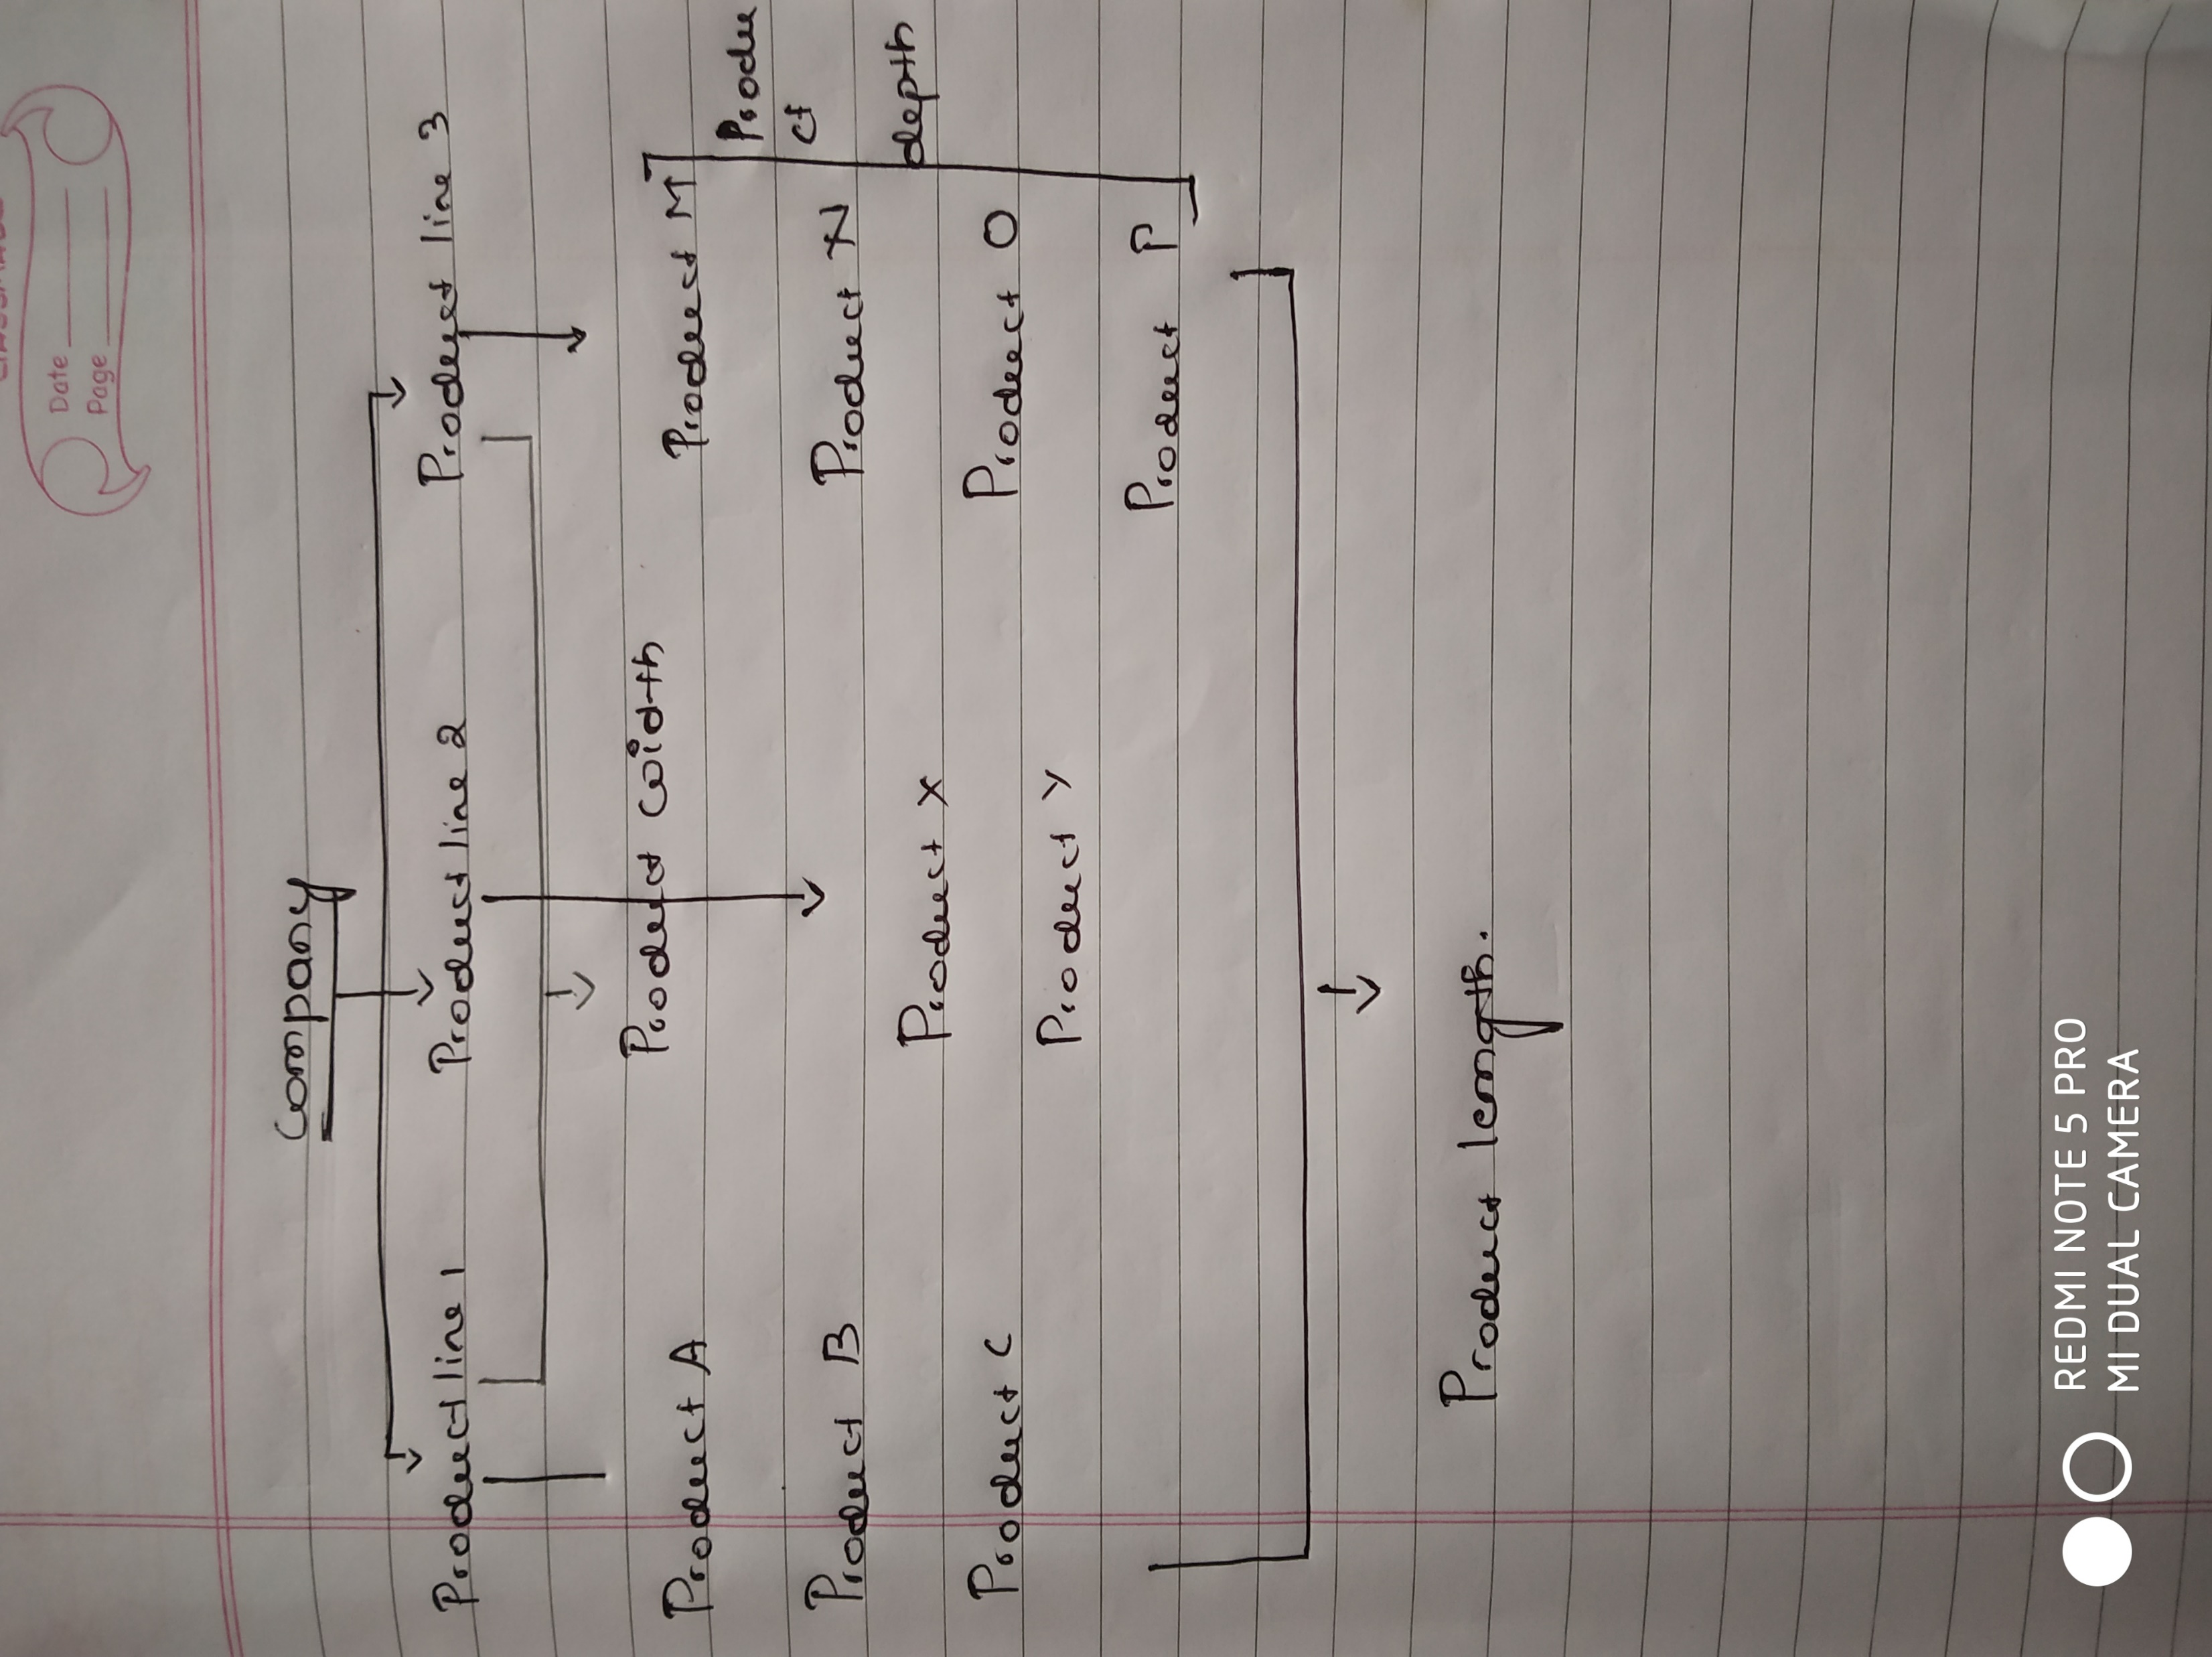 Date
Page
Company
Product line 1 Product line 2 Product line 3
Product width
Product A Product M
Produ
ct
depth
Product B Product N
Product X
Product C Product O
Product Y
Product P
Product length.
REDMI NOTE 5 PRO
MI DUAL CAMERA